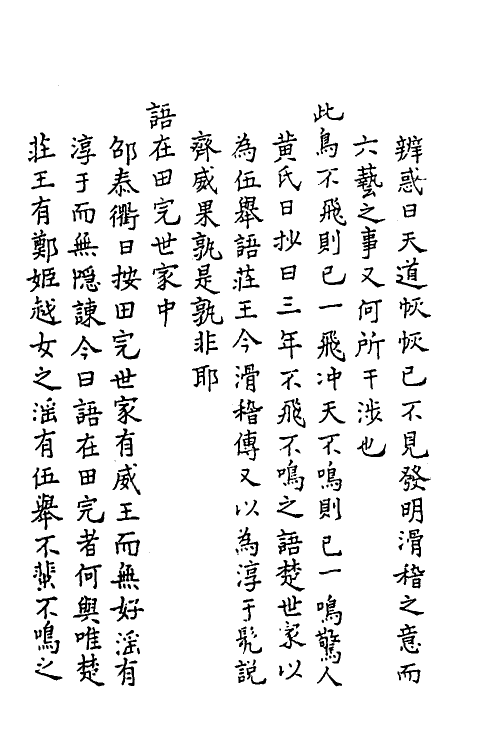 辨惑曰天道恢恢已不見發明滑稽之意而
六藝之事又何所干涉也
此鳥不飛則已一飛冲天不鳴則已一鳴驚人
黄氏日抄曰三年不飛不鳴之語楚世家以
為伍舉語莊王今滑稽傳又以為淳于髡説
齊威果孰是孰非耶
語在田完世家中
邵泰衢曰按田完世家有威王而無好淫有
淳于而無隠諫今日語在田完者何與唯楚
莊王有鄭姬越女之淫有伍舉不蜚不鳴之